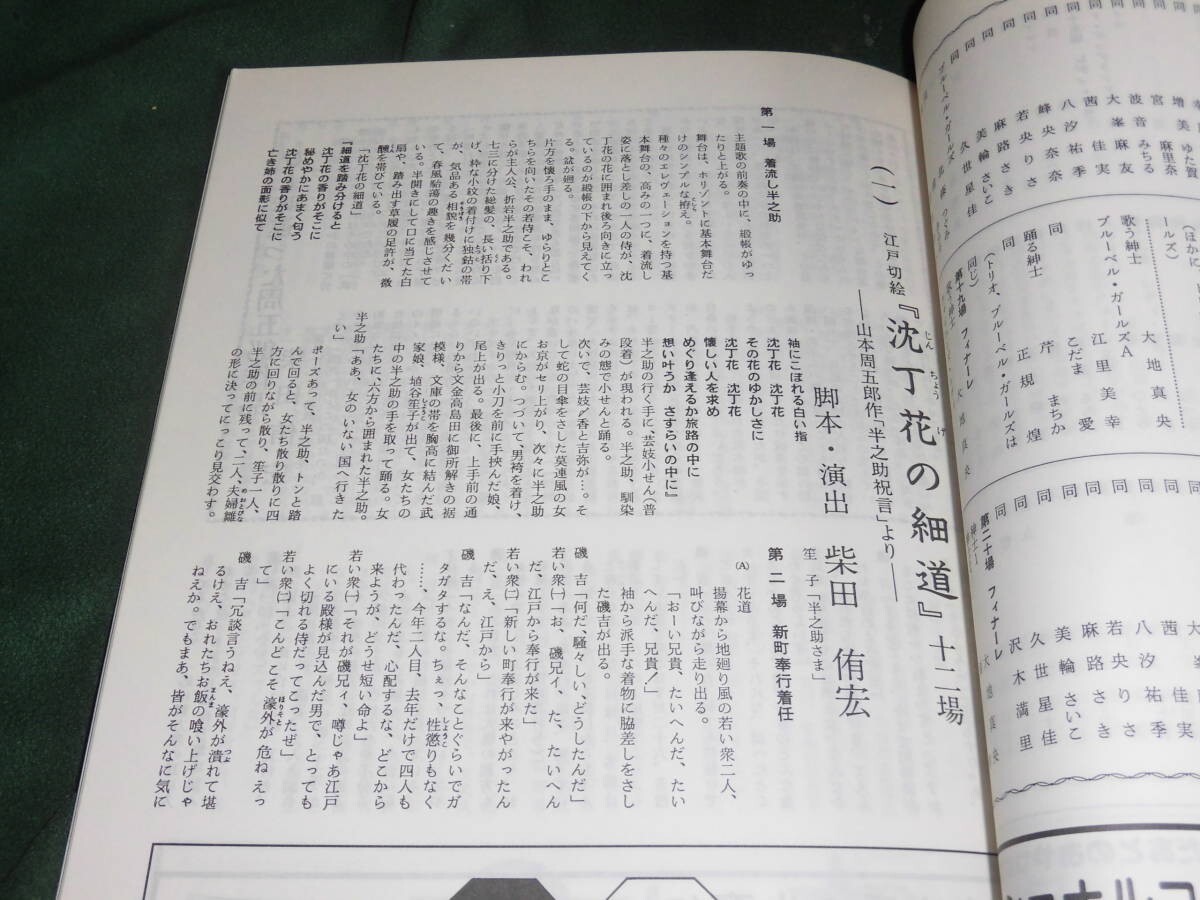 (一)
江戸切絵『沈丁花の細道』十二場
じんちょうげ
――山本周五郎作「半之助祝言」より――
脚本・演出　柴田侑宏
第一場　着流し半之助
主題歌の前奏の中に、緞帳がゆっ
たりと上がる。
舞台は、ホリゾントに基本舞台だ
けのシンプルな拵え。
種々のエレヴェーションを持つ基
本舞台の、高みの一つに、着流し
姿に落とし差しの一人の侍が、沈
丁花の花に囲まれ後ろ向きに立っ
ているのが緞帳の下から見えてく
る。盆が廻る。
片方を懐ろ手のまま、ゆらりとこ
ちらを向いたその若侍こそ、われ
らが主人公、折岩半之助である。
七三に分けた総髪の、長い括り下
げ、粋な小紋の着付けに独鈷の帯
が、気品ある相貌を幾分くだい
て、春風駘蕩の趣きを感じさせて
いる。半開きにして口に当てた白
扇や、踏み出す草履の足許が、微
醺を帯びている。
「沈丁花の細道」
『細道を踏み分けると
沈丁花の香りがそこに
秘めやかにあまく匂う
沈丁花の香りがそこに
亡き姉の面影に似て
袖にこぼれる白い指
沈丁花　沈丁花
その花のゆかしさに
沈丁花　沈丁花
懐しい人を求め
めぐり逢えるか旅路の中に
想い叶うか　さすらいの中に』
半之助の行く手に、芸妓小せん(普
段着)が現われる。半之助、馴染
みの態で小せんと踊る。
次いで、芸妓〆香と吉弥が…。そ
して蛇の目傘をさした莫連風の女
お京がセリ上がり、次々に半之助
にからむ。つづいて、男袴を着け、
きりっと小刀を前に手挟んだ娘、
尾上が出る。最後に、上手前の通
りから文金高島田に御所解きの裾
模様、文庫の帯を胸高に結んだ武
家娘、埴谷笙子が出て、女たちの
中の半之助の手を取って踊る。女
たちに、六方から囲まれた半之助。
半之助「ああ、女のいない国へ行きた
い」
ポーズあって、半之助、トンと踏
んで回ると、女たち散り散りに四
方に回りながら散り、笙子一人、
半之助の前に残って、二人、夫婦雛
の形に決ってにっこり見交わす。
笙　子「半之助さま」
第二場　新町奉行着任
(A)　花道
揚幕から地廻り風の若い衆二人、
叫びながら走り出る。
「おーい兄貴、たいへんだ、たい
へんだ、兄貴！」
袖から派手な着物に脇差しをさし
た磯吉が出る。
磯　吉「何だ、騒々しい、どうしたんだ」
若い衆㈠「お、磯兄ィ、た、たいへん
だ、江戸から奉行が来た」
若い衆㈡「新しい町奉行が来やがったん
だ、え、江戸から」
磯　吉「なんだ、そんなことぐらいでガ
タガタするな。ちぇっ、性懲りもなく
……、今年二人目、去年だけで四人も
代わったんだ、心配するな、どこから
来ようが、どうせ短い命よ」
若い衆㈠「それが磯兄ィ、噂じゃあ江戸
にいる殿様が見込んだ男で、とっても
よく切れる侍だってこったぜ」
若い衆㈡「こんどこそ濠外が危ねえっ
て」
磯　吉「冗談言うねえ、濠外が潰れて堪
るけえ、おれたちお飯の喰い上げじゃ
ねえか。でもまあ、皆がそんなに気に
増美ゆた賀
宮麻里奈
波音みちる
大峯麻友
茜佳実
八汐祐季
峰央奈
若央りさ
麻路さき
美輪さいこ
久世星佳
(ほかに
ールズ)
歌う紳士　大地真央
ブルーベル・ガールズA
江里美幸
こだま愛
同　芹まちか
踊る紳士　正規煌
(トリオ、ブルーベル・ガールズは
同じ)
第十九場　フィナーレ
第二十場　フィナーレ
茜佳実
八汐祐季
若央りさ
麻路さき
美輪さいこ
久世星佳
沢木満里